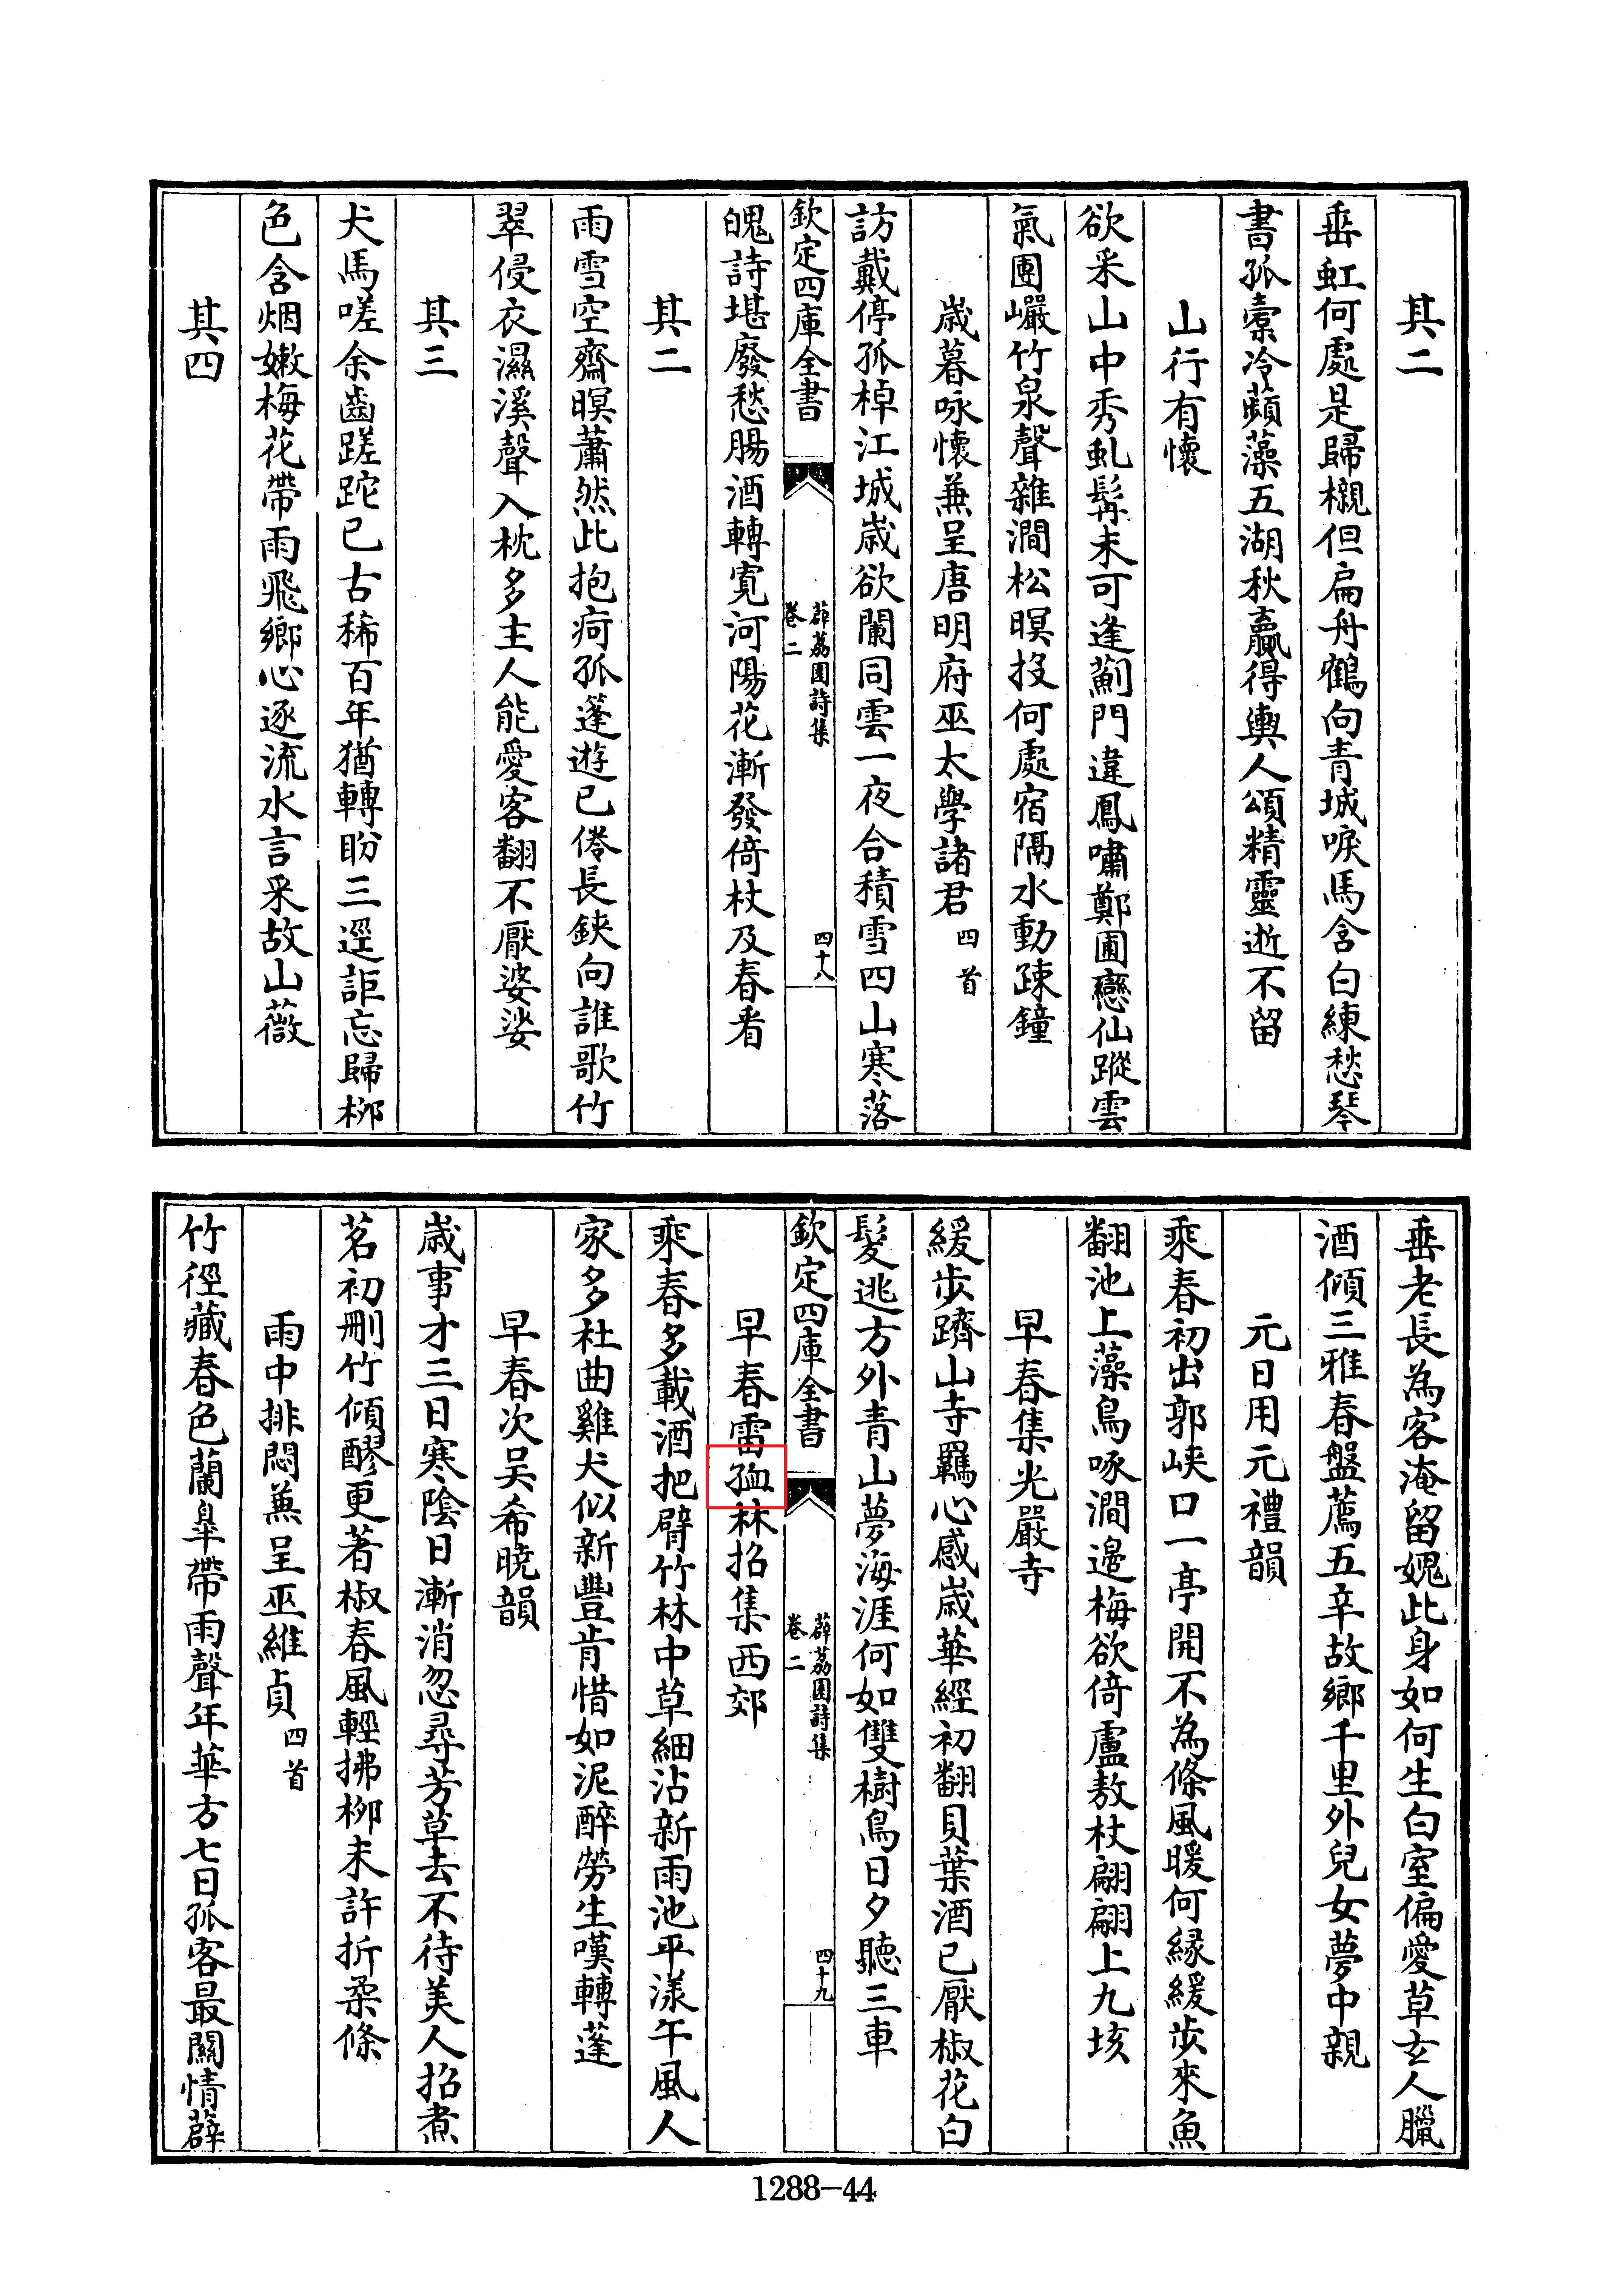 其二
垂虹何處是歸櫬但扁舟鶴向青城唳馬含白練愁琴
書孤橐冷蘋藻五湖秋贏得輿人頌精靈逝不留
山行有懷
欲采山中秀虬髯未可逢薊門違鳳嘯鄭圃戀仙蹤雲
氣團巗竹泉聲雜澗松暝投何處宿隔水動疎鐘
歳暮咏懷兼呈唐明府巫太學諸君四首
訪戴停孤棹江城歳欲闌同雲一夜合積雪四山寒落
欽定四庫全書
薜荔園詩集
卷二
四十八
魄詩堪廢愁腸酒轉寛河陽花漸發倚杖及春看
其二
雨雪空齋暝蕭然此抱疴孤篷遊已倦長鋏向誰歌竹
翠侵衣濕溪聲入枕多主人能愛客翻不厭婆娑
其三
犬馬嗟余齒蹉跎已古稀百年猶轉盼三逕詎忘歸栁
色含烟嫩梅花帶雨飛鄉心逐流水言采故山薇
其四
垂老長為客淹留媿此身如何生白室偏愛草玄人臘
酒傾三雅春盤薦五辛故鄉千里外兒女夢中親
元日用元禮韻
乘春初出郭峽口一亭開不為條風暖何縁緩步來魚
翻池上藻鳥啄澗邉梅欲倚盧敖杖翩翩上九垓
早春集光嚴寺
緩步躋山寺羈心感歳華經初翻貝葉酒已厭椒花白
髪逃方外青山夢海涯何如雙樹鳥日夕聽三車
欽定四庫全書
薜荔園詩集
卷二
四十九
早春雷䘏林招集西郊
乘春多載酒把臂竹林中草細沾新雨池平漾午風人
家多杜曲雞犬似新豐肯惜如泥醉勞生嘆轉蓬
早春次吳希曉韻
歳事才三日寒陰日漸消忽尋芳草去不待美人招煮
茗初刪竹傾醪更著椒春風輕拂栁未許折柔條
雨中排悶兼呈巫維貞四首
竹徑藏春色蘭皐帶雨聲年華方七日孤客最關情薜
1288-44